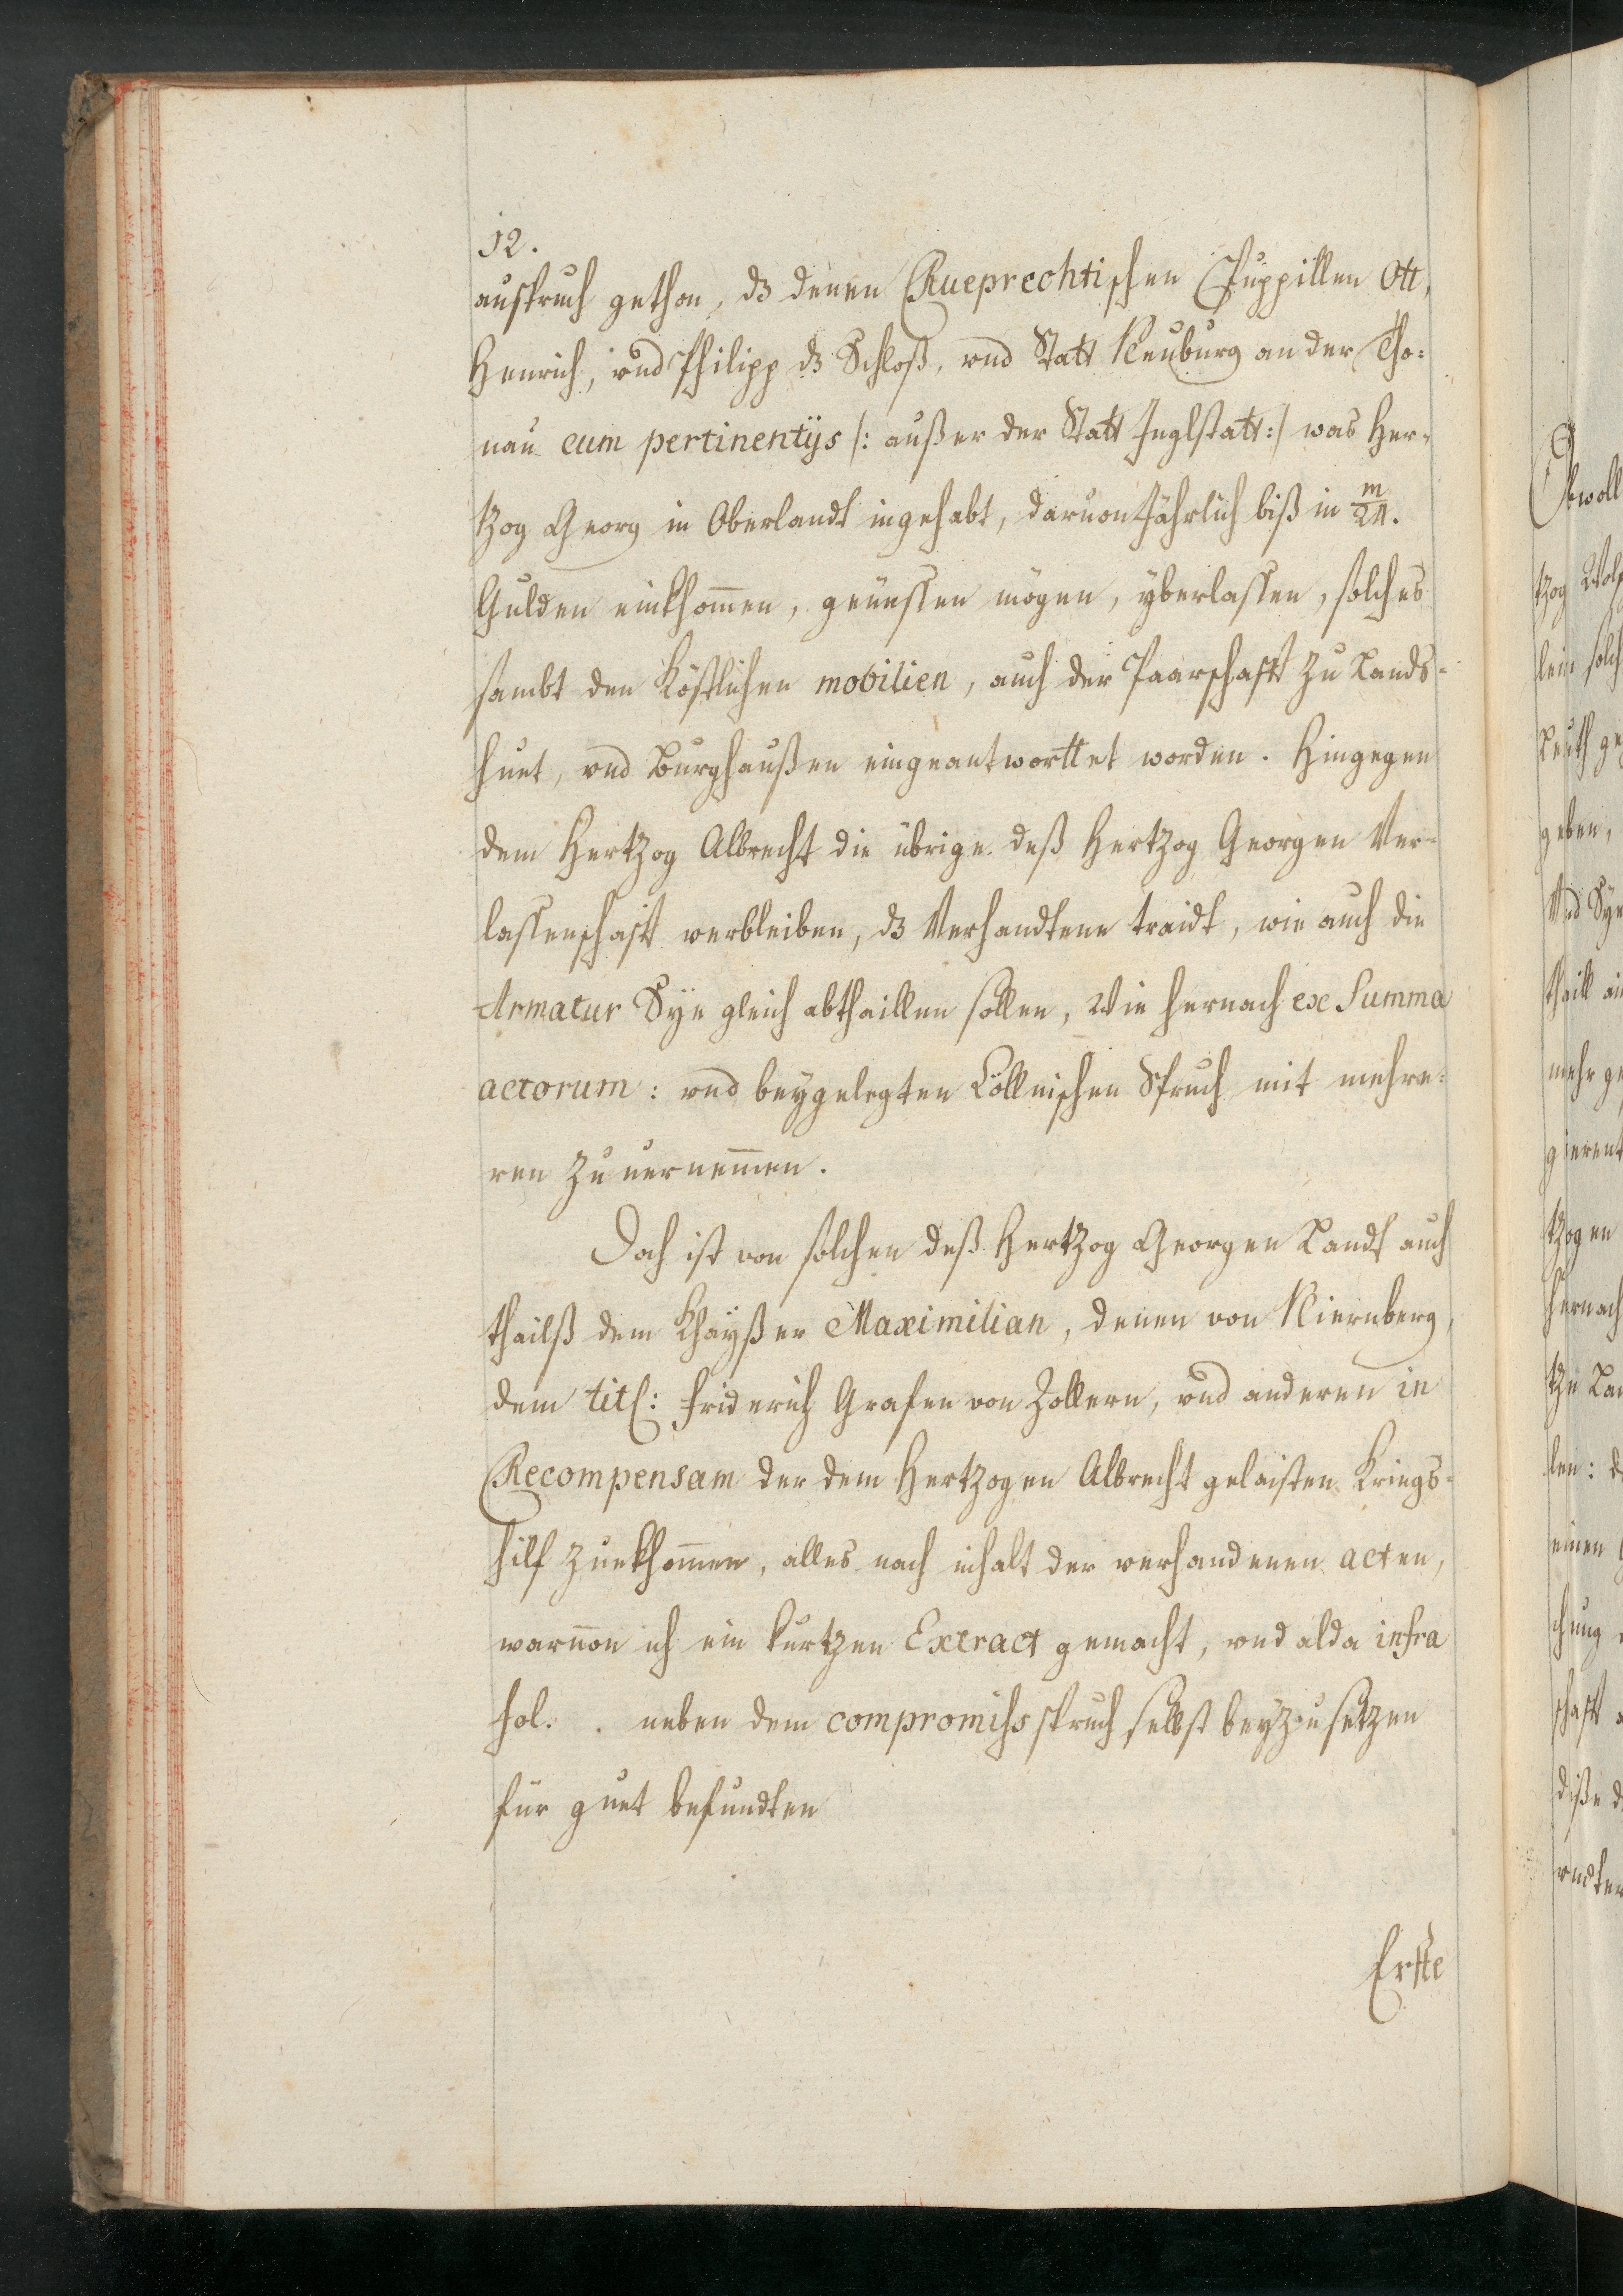 12.
ausspruch gethon, dz denen Rueprechtischen Puppillen Ott,
Henrich, und Philipp dz Schloß, vnd Statt Neuburg an der Tho=
nau cum pertinentijs /: außer der Statt Inglstatt :/ was Her=
tzog Georg in Oberlandt ingehabt, daruon Jährlich biß in m/24.
Gulden einkhom̄en, geniessen mögen, yberlassen, solches
sambt den Köstlichen mobilien, auch der Paarschafft zu Lands=
huet, vnd Burghaußen eingeantworttet worden. Hingegen
dem Hertzog Albrecht die übrige deß Hertzog Georgen Ver=
lassenschafft verbleiben, dz Verhandtene traidt, wie auch die
Armatur Sye gleich abthaillen sollen, Wie hernach ex Summa
actorum: vnd beygelegten Cöllnischen Spruch mit mehre=
ren zu uernem̄en.
Doch ist von solchen deß Hertzog Georgen Landt auch
thailß dem Khayßer Maximilian, denen von Niernberg,
dem titl: Friderich Grafen von Zollern, vnd anderen in
Recompensam der dem Hertzogen Albrecht gelaisten Kriegs=
hilf zuekhom̄men, alles nach inhalt der verhandenen acten,
waruon ich ein kurtzen Extract gemacht, vnd alda infra
fol. . neben dem compromiss spruch selbst beyzusetzen
für guet befundten
Erste